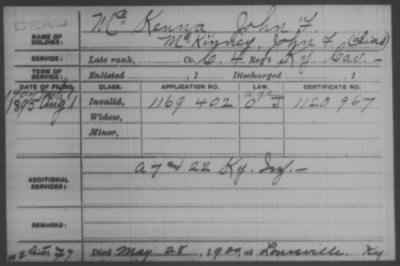 DEAD
Mc Kenna John F.
NAME OF SOLDIER: McKinney, John F (alias)
SERVICE: Late rank, Co. C, 4 Reg't Ky. Cav. -
TERM OF SERVICE: Enlisted , 1 Discharged , 1
DATE OF FILING. CLASS. APPLICATION NO. LAW. CERTIFICATE NO.
1895 Aug 1 Invalid, 1169 402 1120 967
Widow,
Minor,
ADDITIONAL SERVICES: A 7 and 22 Ky. Inf. -
REMARKS:
Died May 28, 1920, at Louisville, Ky